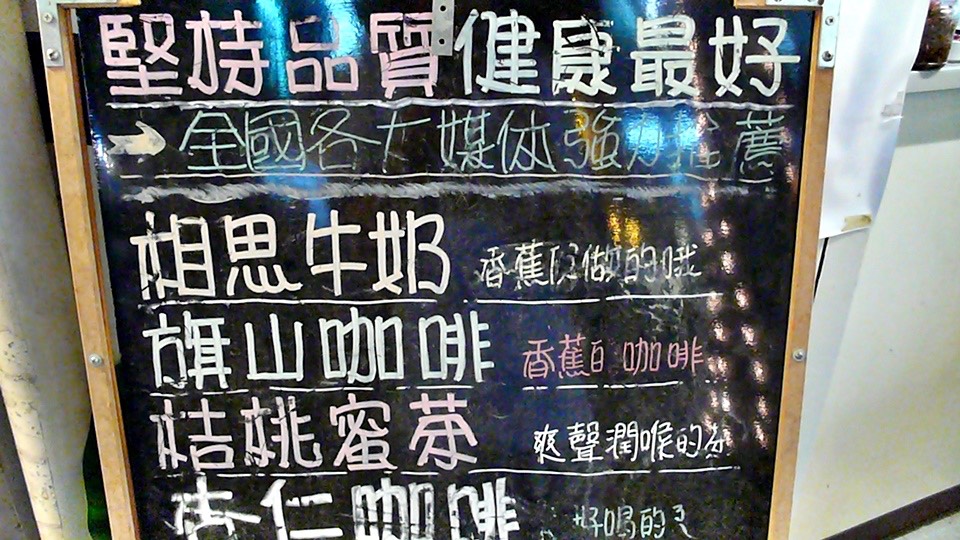 堅持品質健康最好
全國各大媒体強力推薦
相思牛奶 香蕉 做的哦
旗山咖啡 香蕉白咖啡
桔桃蜜茶 爽聲潤喉的茶
杏仁咖啡 好喝的